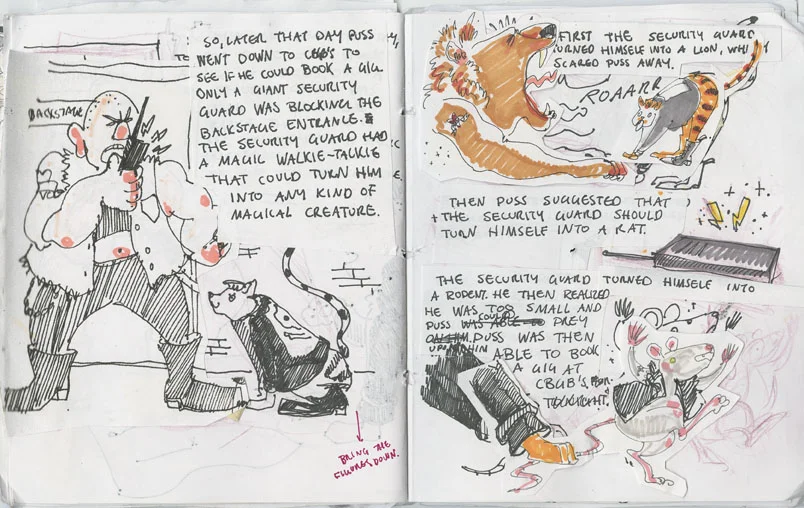 SO, LATER THAT DAY PUSS
WENT DOWN TO CBGB'S TO
SEE IF HE COULD BOOK A GIG.
ONLY A GIANT SECURITY
GUARD WAS BLOCKING THE
BACKSTAGE ENTRANCE.
THE SECURITY GUARD HAD
A MAGIC WALKIE-TALKIE
THAT COULD TURN HIM
INTO ANY KIND OF
MAGICAL CREATURE.
BACKSTAGE
BRING THE
FIGURES DOWN.
FIRST THE SECURITY GUARD
TURNED HIMSELF INTO A LION, WHICH
SCARED PUSS AWAY.
ROAARR
THEN PUSS SUGGESTED THAT
THE SECURITY GUARD SHOULD
TURN HIMSELF INTO A RAT.
THE SECURITY GUARD TURNED HIMSELF INTO
A RODENT. HE THEN REALIZED
HE WAS TOO SMALL AND
PUSS COULD PREY
UPON HIM PUSS WAS THEN
ABLE TO BOOK
A GIG AT
CBGB'S, FOR
TOUGHT.